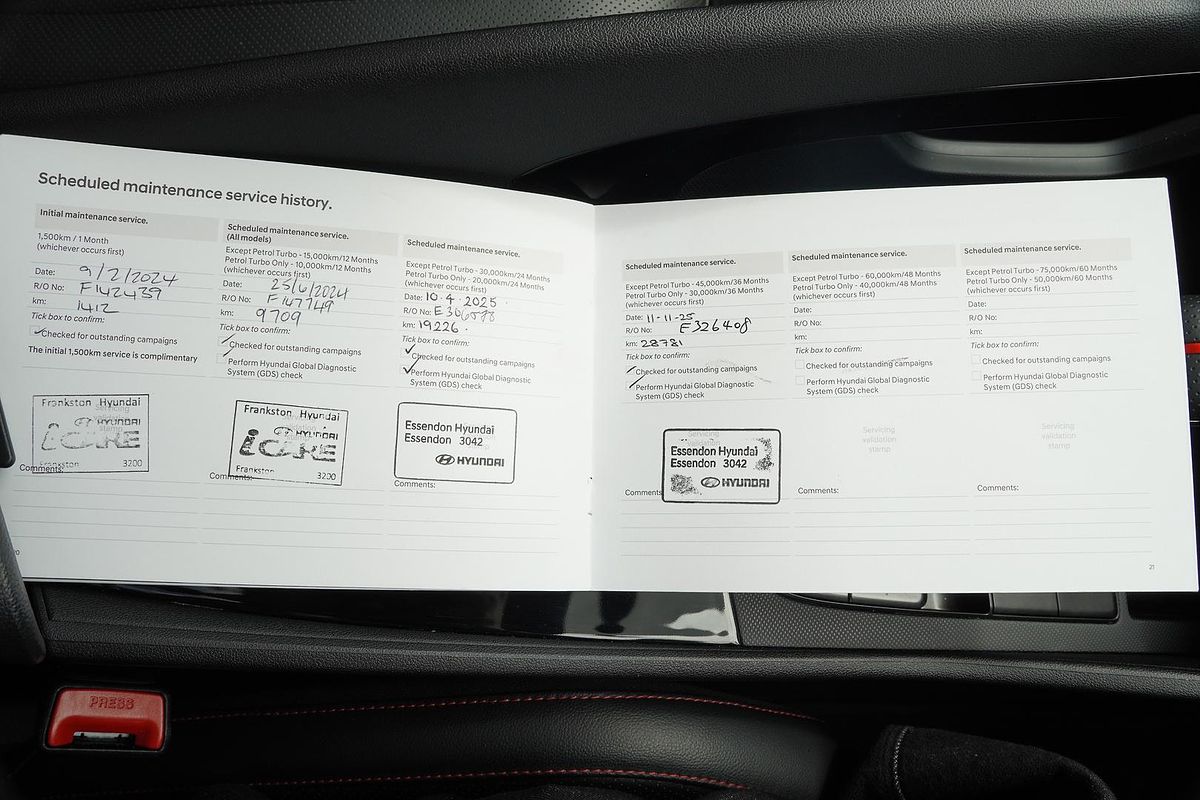 Scheduled maintenance service history.
Initial maintenance service.
1,500km / 1 Month
(whichever occurs first)
Date: 9/2/2024
R/O No: F142439
km: 1412
Tick box to confirm:
Checked for outstanding campaigns
The initial 1,500km service is complimentary
Frankston Hyundai
HYUNDAI
iCARE
Frankston 3200
Comments:
Scheduled maintenance service.
(All models)
Except Petrol Turbo - 15,000km/12 Months
Petrol Turbo Only - 10,000km/12 Months
(whichever occurs first)
Date: 25/6/2024
R/O No: F147749
km: 9709
Tick box to confirm:
Checked for outstanding campaigns
Perform Hyundai Global Diagnostic
System (GDS) check
Frankston Hyundai
HYUNDAI
iCARE
Frankston 3200
Comments:
Scheduled maintenance service.
Except Petrol Turbo - 30,000km/24 Months
Petrol Turbo Only - 20,000km/24 Months
(whichever occurs first)
Date: 10.4.2025.
R/O No: E306588
km: 19226.
Tick box to confirm:
Checked for outstanding campaigns
Perform Hyundai Global Diagnostic
System (GDS) check
Essendon Hyundai
Essendon 3042
HYUNDAI
Comments:
Scheduled maintenance service.
Except Petrol Turbo - 45,000km/36 Months
Petrol Turbo Only - 30,000km/36 Months
(whichever occurs first)
Date: 11-11-25
R/O No: E326408
km: 28781
Tick box to confirm:
Checked for outstanding campaigns
Perform Hyundai Global Diagnostic
System (GDS) check
Servicing
validation
Essendon Hyundai
Essendon 3042
HYUNDAI
Comments
Scheduled maintenance service.
Except Petrol Turbo - 60,000km/48 Months
Petrol Turbo Only - 40,000km/48 Months
(whichever occurs first)
Date:
R/O No:
km:
Tick box to confirm:
Checked for outstanding campaigns
Perform Hyundai Global Diagnostic
System (GDS) check
Servicing
validation
stamp
Comments:
Scheduled maintenance service.
Except Petrol Turbo - 75,000km/60 Months
Petrol Turbo Only - 50,000km/60 Months
(whichever occurs first)
Date:
R/O No:
km:
Tick box to confirm:
Checked for outstanding campaigns
Perform Hyundai Global Diagnostic
System (GDS) check
Servicing
validation
stamp
Comments:
21
PRESS